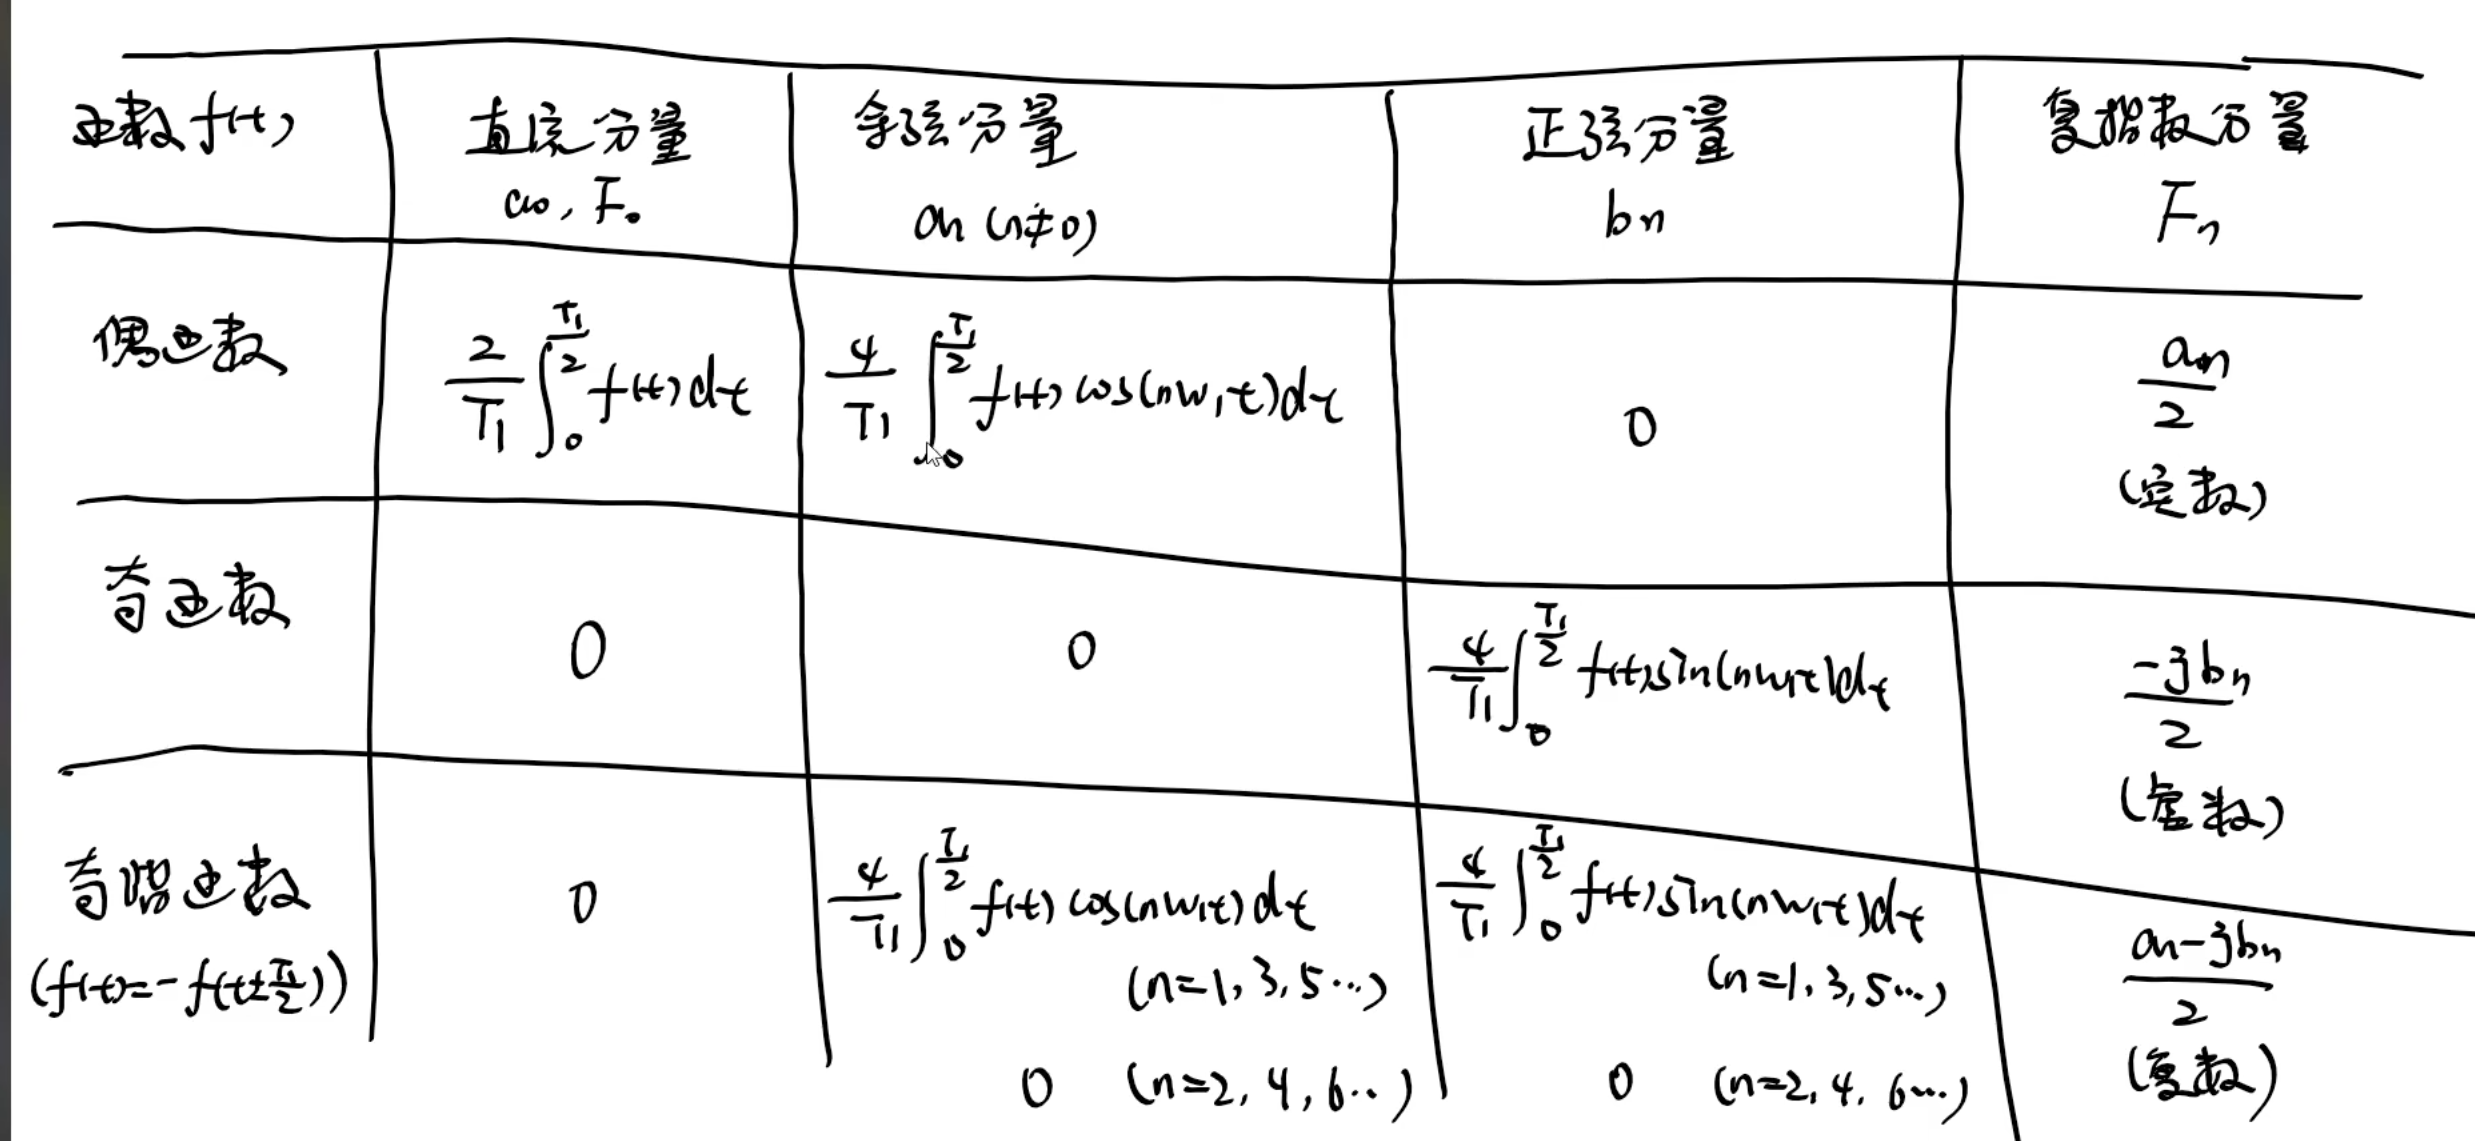 函数f(t)
直流分量
a₀, F₀
余弦分量
aₙ (n≠0)
正弦分量
bₙ
复指数分量
Fₙ
偶函数
2/T₁ ∫₀^(T₁/2) f(t)dt
4/T₁ ∫₀^(T₁/2) f(t)cos(nw₁t)dt
0
aₙ/2
(实数)
奇函数
0
0
4/T₁ ∫₀^(T₁/2) f(t)sin(nw₁t)dt
-jbₙ/2
(虚数)
奇谐函数
(f(t)=-f(t±T₁/2))
0
4/T₁ ∫₀^(T₁/2) f(t)cos(nw₁t)dt
(n=1,3,5…)
0 (n=2,4,6…)
4/T₁ ∫₀^(T₁/2) f(t)sin(nw₁t)dt
(n=1,3,5…)
0 (n=2,4,6…)
aₙ-jbₙ/2
(复数)